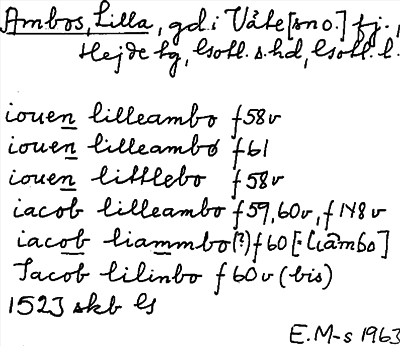 Ambos, Lilla, gd. i Väte [sno.] fj.,
Hejde tg, Gotl. s. hd, Gotl. l.
iouen lilleambo f 58v
iouen lilleambo f 61
iouen littlebo f 58v
iacob lilleambo f 59, 60v, f 148v
iacob liammbo(?) f 60 [: liāmbo]
Jacob lilinbo f 60v (bis)
1523 skb Gs
E.M-s 1963